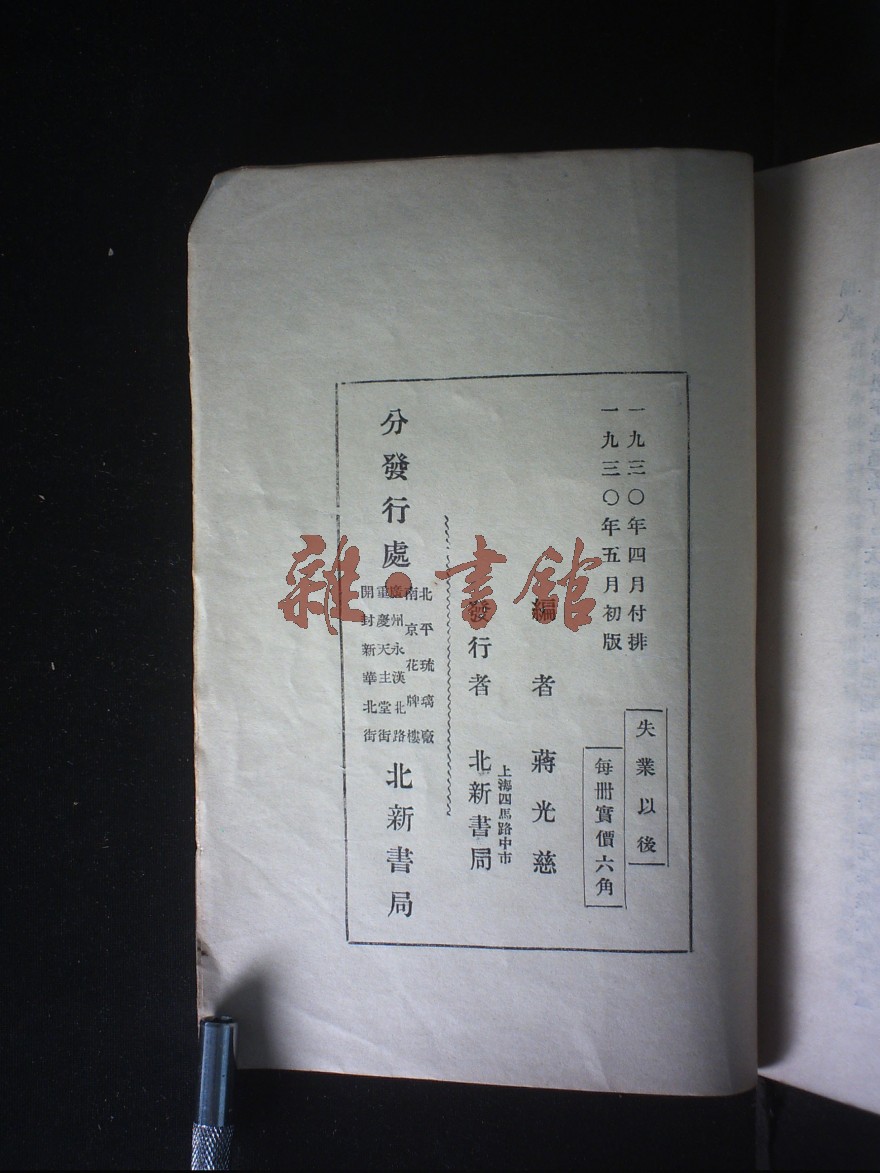 一九三〇年四月付排
一九三〇年五月初版
失業以後
每冊實價六角
編者 蔣光慈
上海四馬路中市
發行者 北新書局
分發行處
北平琉璃廠
南京花牌樓
廣州永漢北路
重慶天主堂街
開封新華北街
北新書局
雜·書館